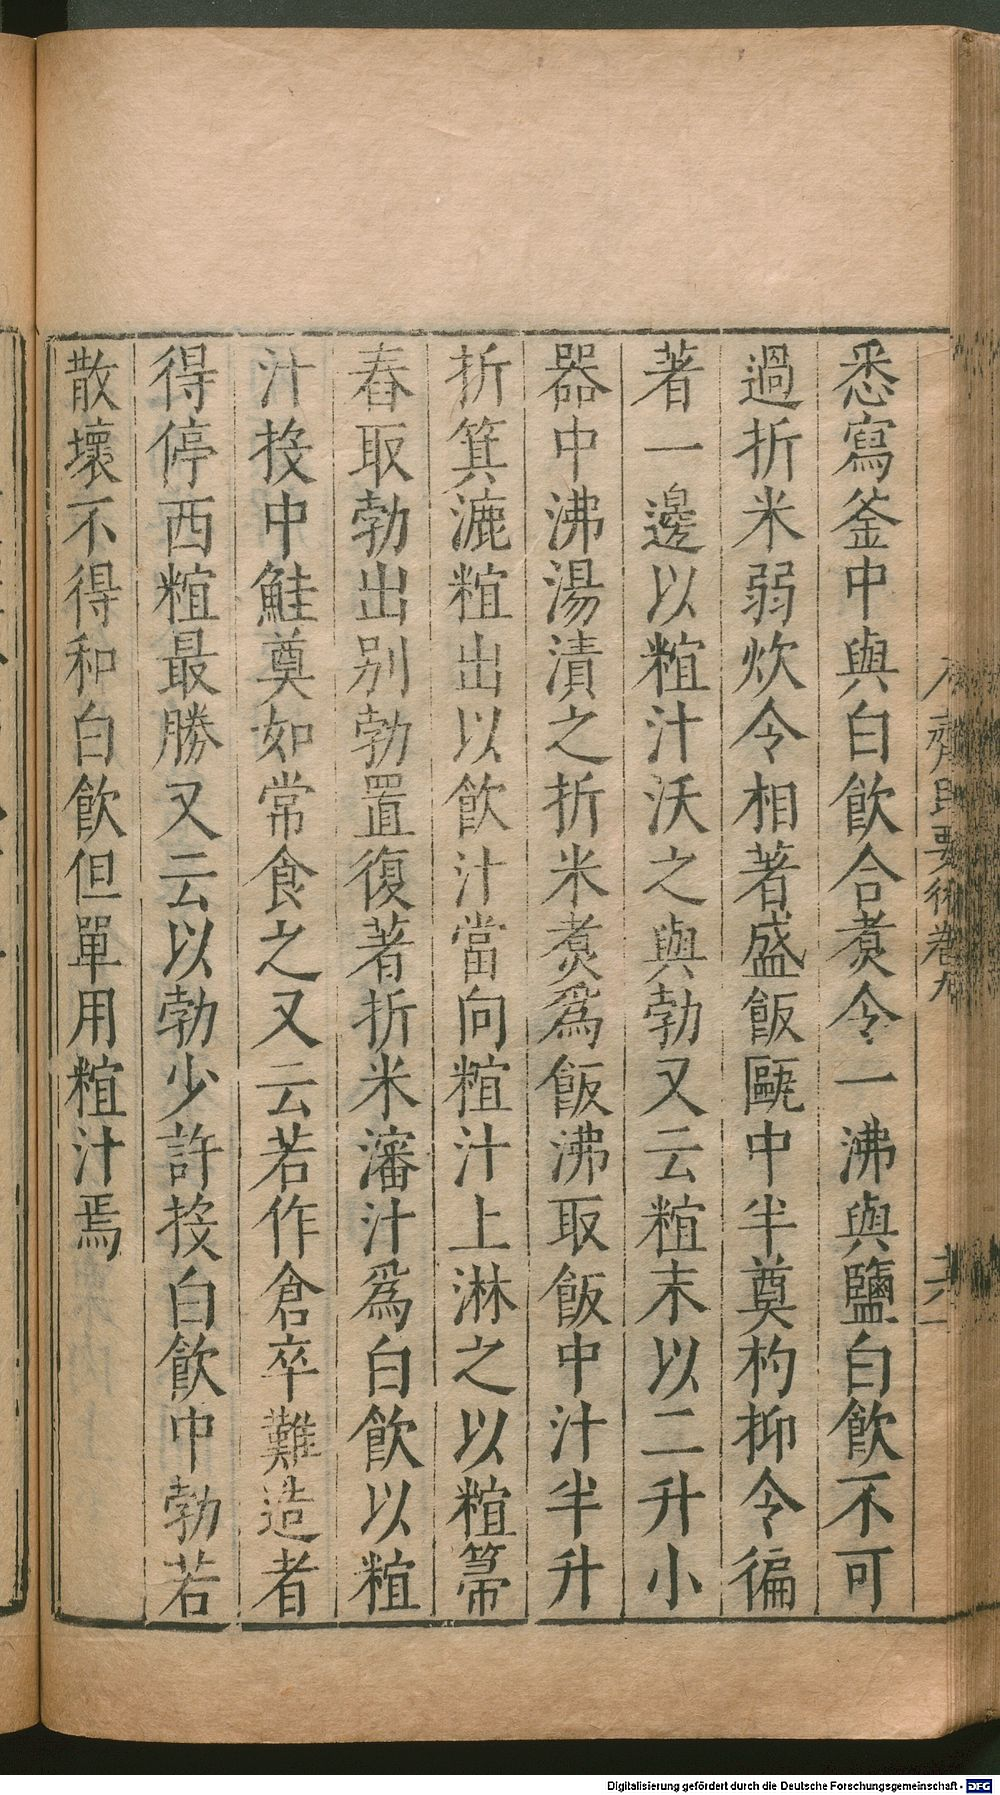 悉寫釜中與白飲合煑令一沸與鹽白飲不可
過折米弱炊令相著盛飯甌中半奠杓抑令偏
著一邊以䊎汁沃之與勃又云䊎末以二升小
器中沸湯漬之折米煑爲飯沸取飯中汁半升
折箕漉䊎出以飲汁當向䊎汁上淋之以䊎箒
舂取勃出别勃置復著折米瀋汁爲白飲以䊎
汁投中鮭奠如常食之又云若作倉卒難造者
得停西䊎最勝又云以勃少許投白飲中勃若
散壞不得和白飲但單用䊎汁焉
齊民要術卷九
Digitalisierung gefördert durch die Deutsche Forschungsgemeinschaft - DFG